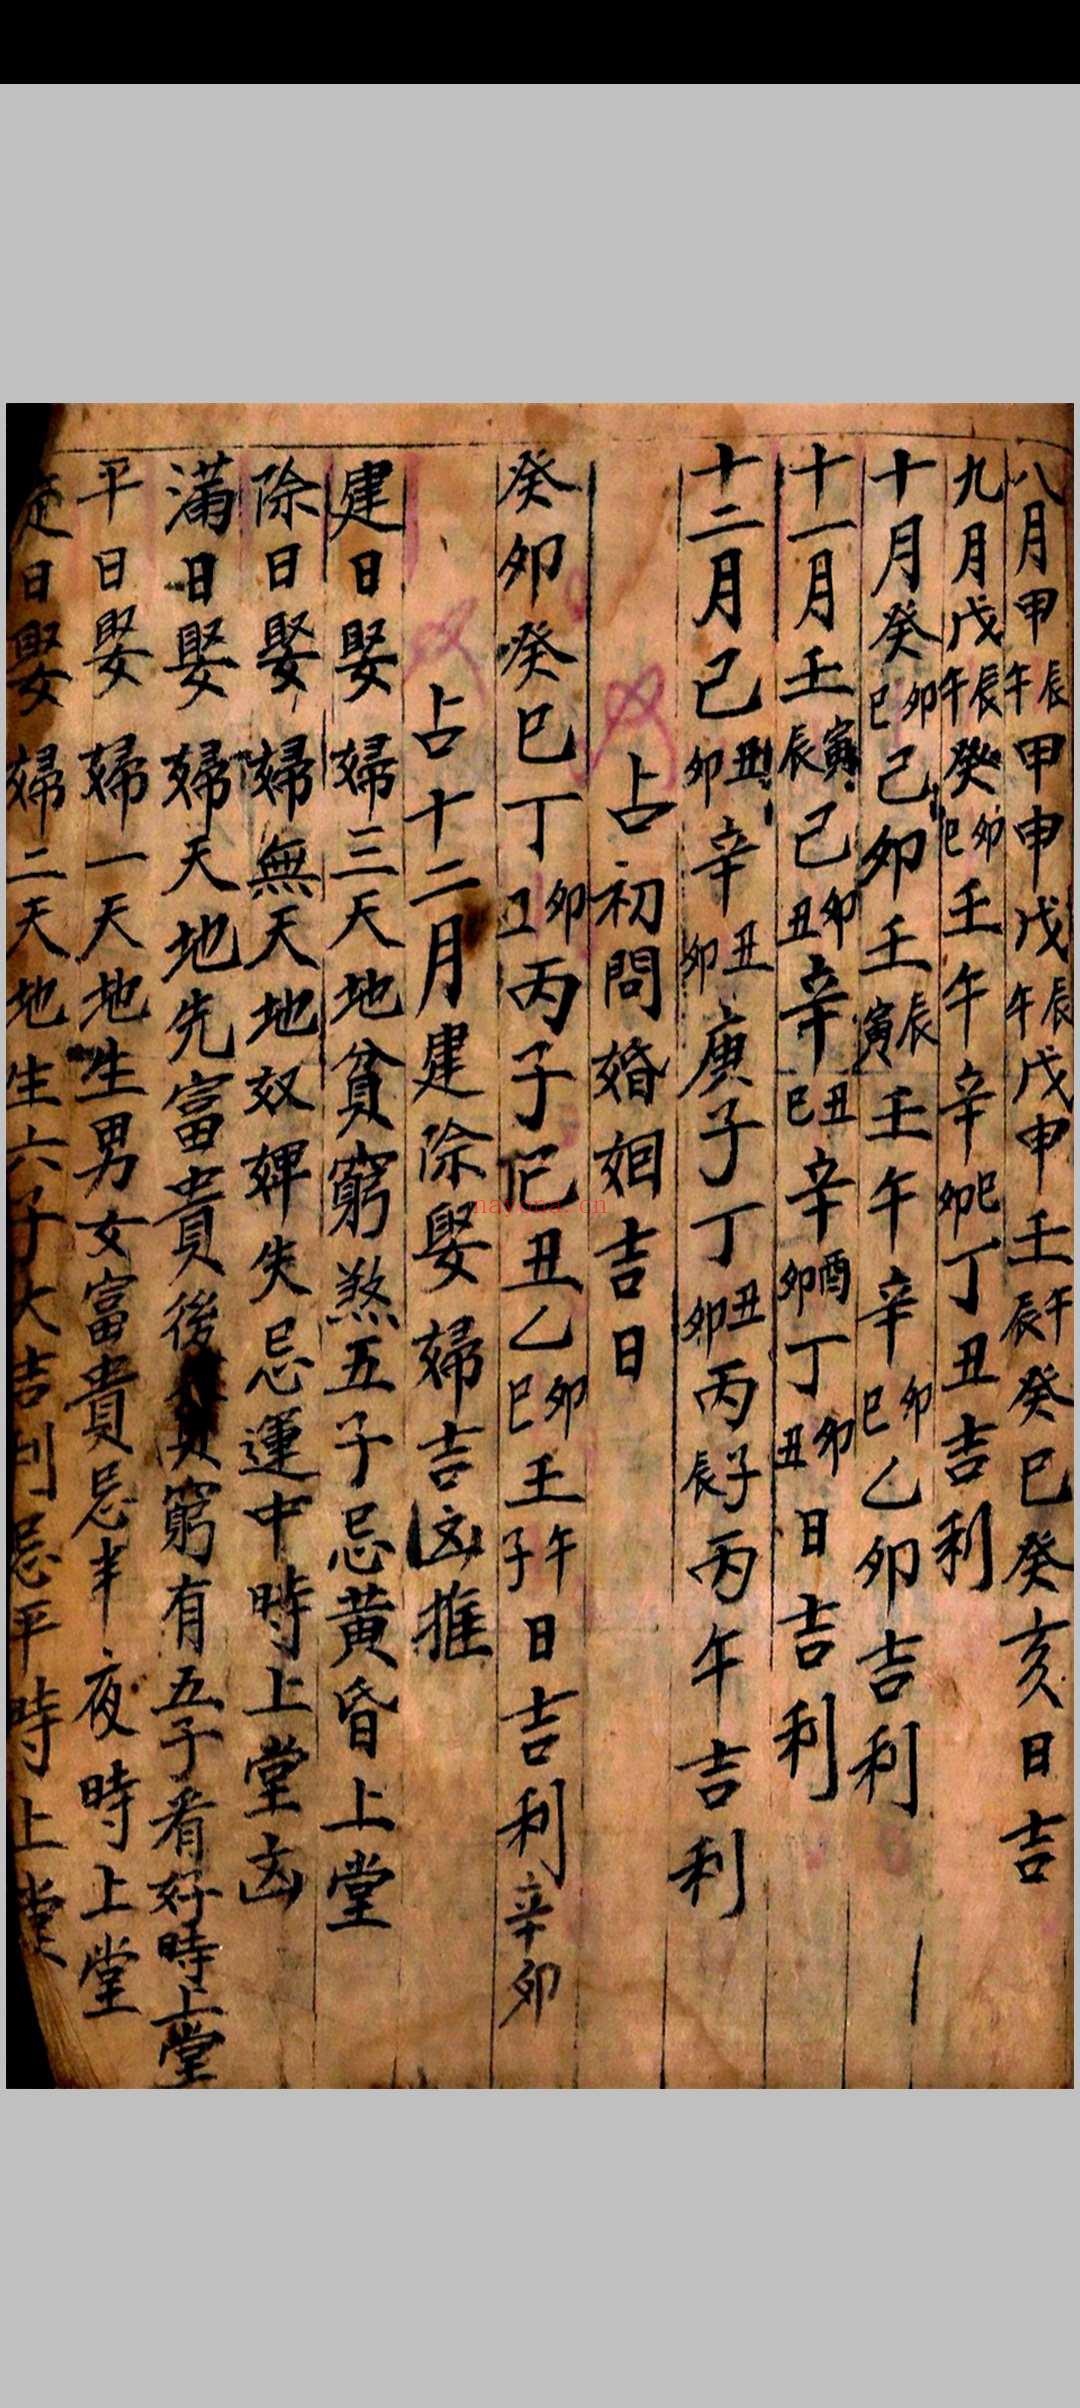 八月甲辰午甲申戊辰午戊申壬午辰癸巳癸亥日吉
九月戊辰午癸卯巳壬午辛巳卯丁丑吉利
十月癸卯巳己卯壬辰寅壬午辛卯巳乙卯吉利
十一月壬寅辰己卯丑辛丑巳辛酉卯丁卯丑日吉利
十二月己丑卯辛丑卯庚子丁丑卯丙子辰丙午吉利
占初問婚姻吉日
癸卯癸巳丁卯丑丙子己丑乙卯巳壬午子日吉利辛卯
占十二月建除娶婦吉凶推
建日娶婦三天地貧窮煞五子忌黄昏上堂
除日娶婦無天地奴婢失忌運中時上堂凶
滿日娶婦天地先富貴後貧窮有五子看好時上堂
平日娶婦一天地生男女富貴忌半夜時上堂
定日娶婦二天地生六子大吉利忌平時上堂
nayona.cn